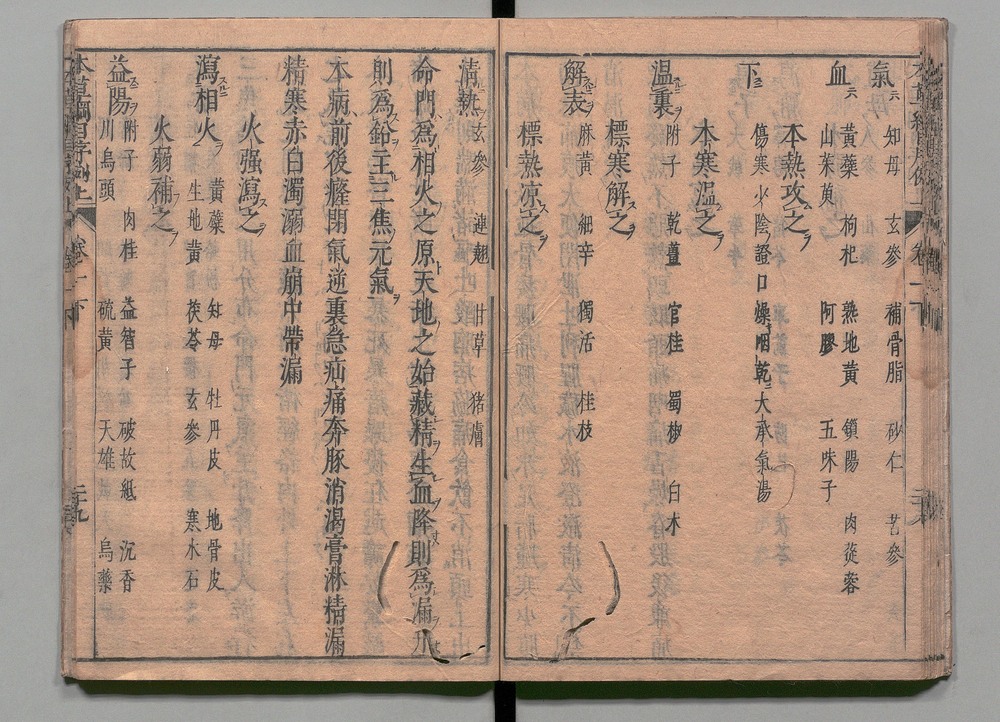 氣ニ
知母 玄參 補骨脂 砂仁 苦參
血ニ
黃蘗 枸杞 熟地黃 鎖陽 肉蓯蓉
山茱萸 阿膠 五味子
本熱攻之ヲ
下ニ
傷寒少陰證口燥咽乾ニ大承氣湯
本寒溫之ヲ
溫裏ヲ
附子 乾薑 官桂 蜀椒 白朮
標寒解之ヲ
解表ヲ
麻黃 細辛 獨活 桂枝
標熱凉之ヲ
清熱ヲ
玄參 連翹 甘草 猪膚
命門爲相火之原天地之始藏精生血降則爲漏升
則爲鉛主三焦元氣ヲ
本病前後癃閉氣逆裏急疝痛奔豚消渴膏淋精漏
精寒赤白濁溺血崩中帶漏
火强瀉之ヲ
瀉相火ヲ
黃蘗 知母 牡丹皮 地骨皮
生地黃 茯苓 玄參 寒水石
火弱補之ヲ
益陽ヲ
附子 肉桂 益智子 破故紙 沉香
川烏頭 硫黃 天雄 烏藥
本草綱目序例上 卷一下 二十九